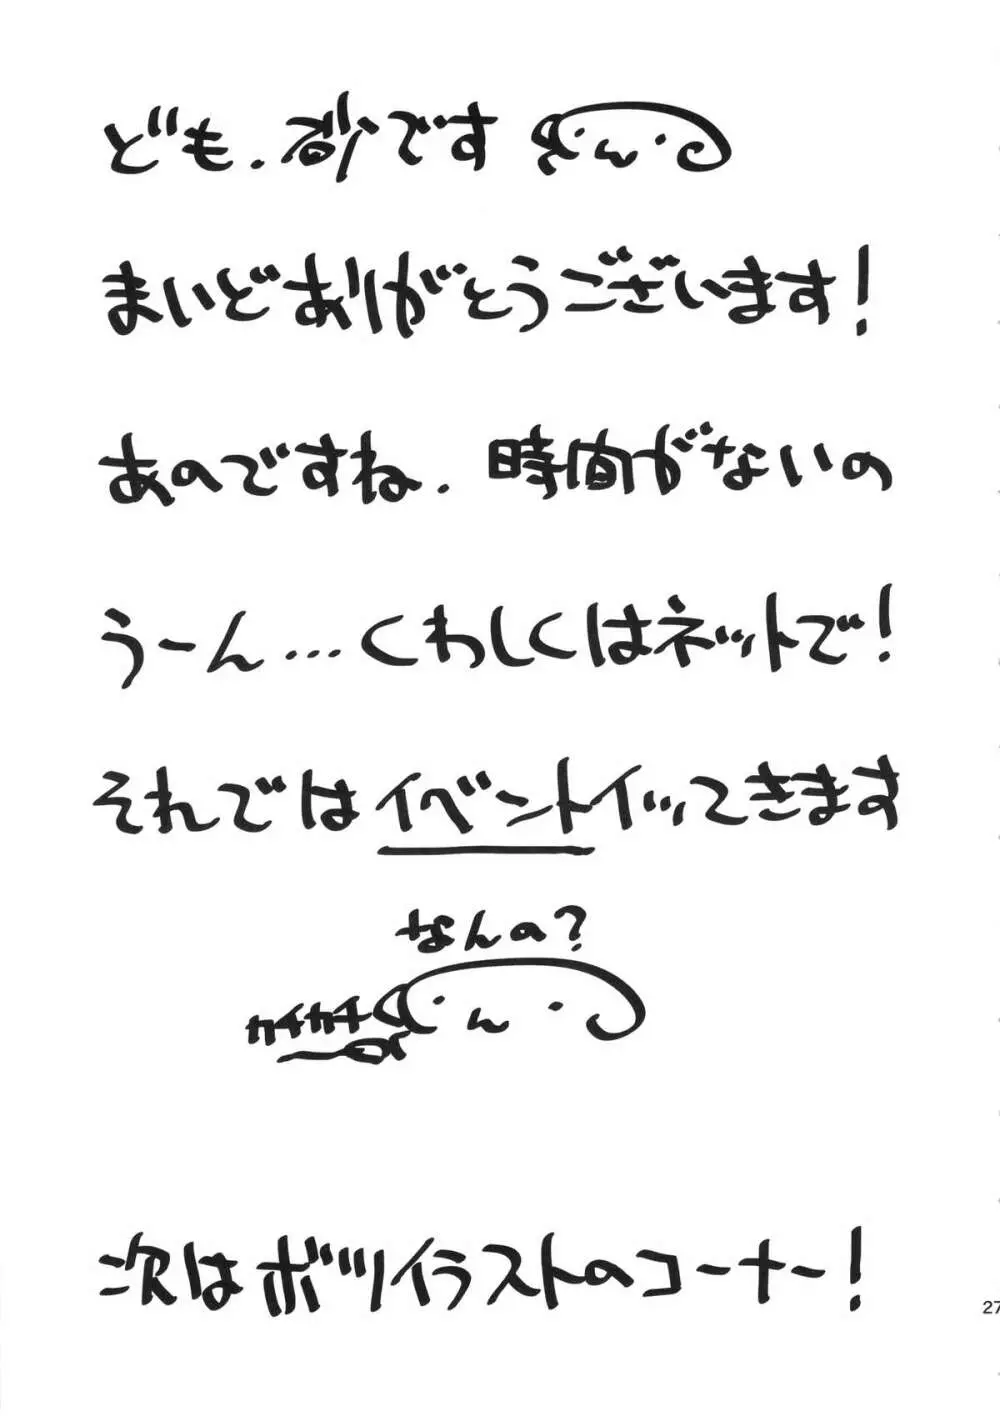 ども.です
まいどありがとうございます!
あのですね.時間がないの
うーん…くわしくはネットで!
それではイベントイッてきます
なんの?
カチカチ
次はボツイラストのコーナー!
27